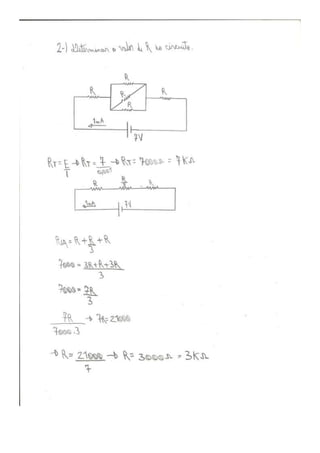 2-) Determinar o valor de R no circuito.
R
R R R
R
1mA
7V
RT = E/I → RT = 7/0,001 → RT = 7000Ω = 7KΩ
R R/3 R
1mA 7V
Req = R + R/3 + R
7000 = 3R+R+3R/3
7000 = 7R/3
7R/7000.3 → 7R = 21000
→ R = 21000/7 → R = 3000Ω = 3KΩ